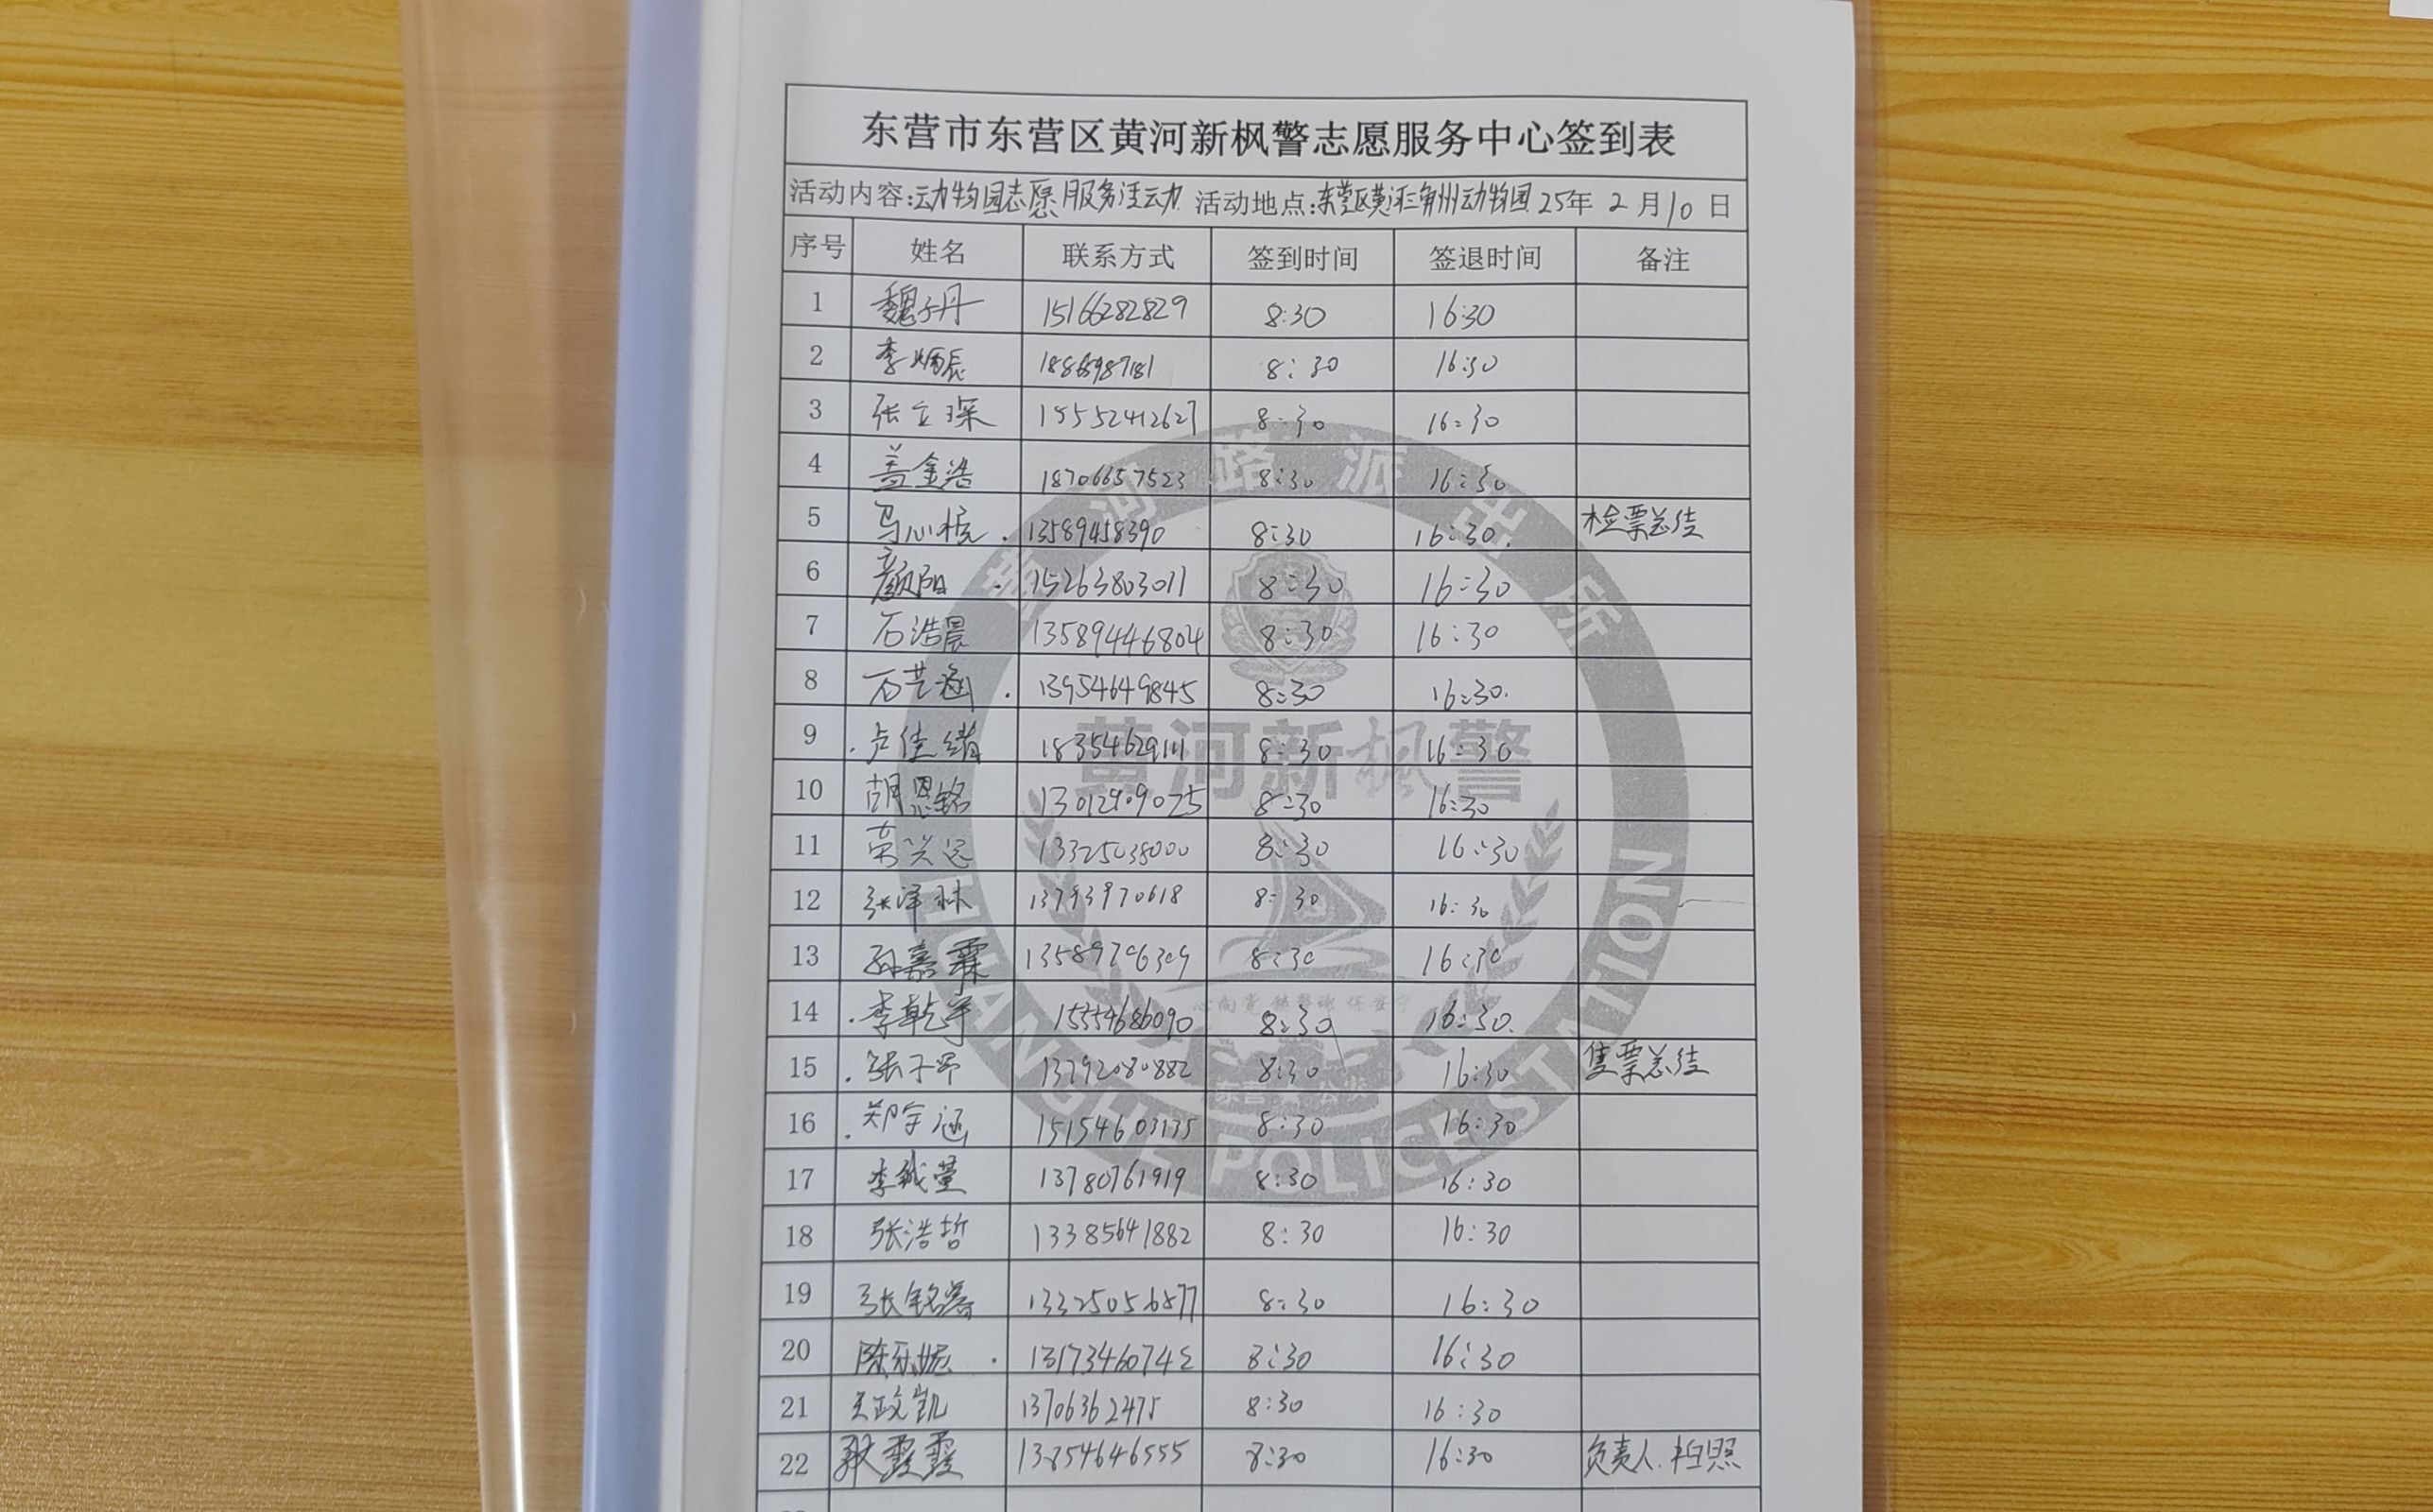 东营市东营区黄河新枫警志愿服务中心签到表
活动内容:动物园志愿服务活动 活动地点:东营区黄河三角州动物园 25年 2 月 10 日
序号 姓名 联系方式 签到时间 签退时间 备注
1 魏子丹 15166282829 8:30 16:30
2 李炳辰 8:30 16:30
3 张立琛 8:30 16:30
4 盖金浩 18706657523 8:30 16:30
5 马心悦 13589458390 8:30 16:30 检票总结
6 颜阳 15263803011 8:30 16:30
7 石浩晨 13589446804 8:30 16:30
8 石芸涵 13954649845 8:30 16:30
9 卢佳绪 18354629111 8:30 16:30
10 胡恩铭 13012909025 8:30 16:30
11 荣兴远 13325038000 8:30 16:30
12 张泽林 13793970618 8:30 16:30
13 孙嘉霖 13589796309 8:30 16:30
14 李乾宇 15554686090 8:30 16:30
15 张子昂 13792080882 8:30 16:30 售票总结
16 郑宇涵 15154603135 8:30 16:30
17 李铖萱 13780761919 8:30 16:30
18 张浩哲 13385641882 8:30 16:30
19 张铭 13325056877 8:30 16:30
20 陈乐妮 8:30 16:30
21 王政凯 13706362475 8:30 16:30
22 耿霞霞 13854646555 8:30 16:30 负责人.拍照
黄河路派出所
黄河新枫警
HUANGHE POLICE STATION